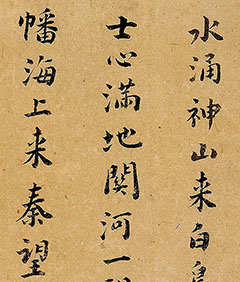 水涌神山来白鳥
士心满地関河一
幡海上来秦望